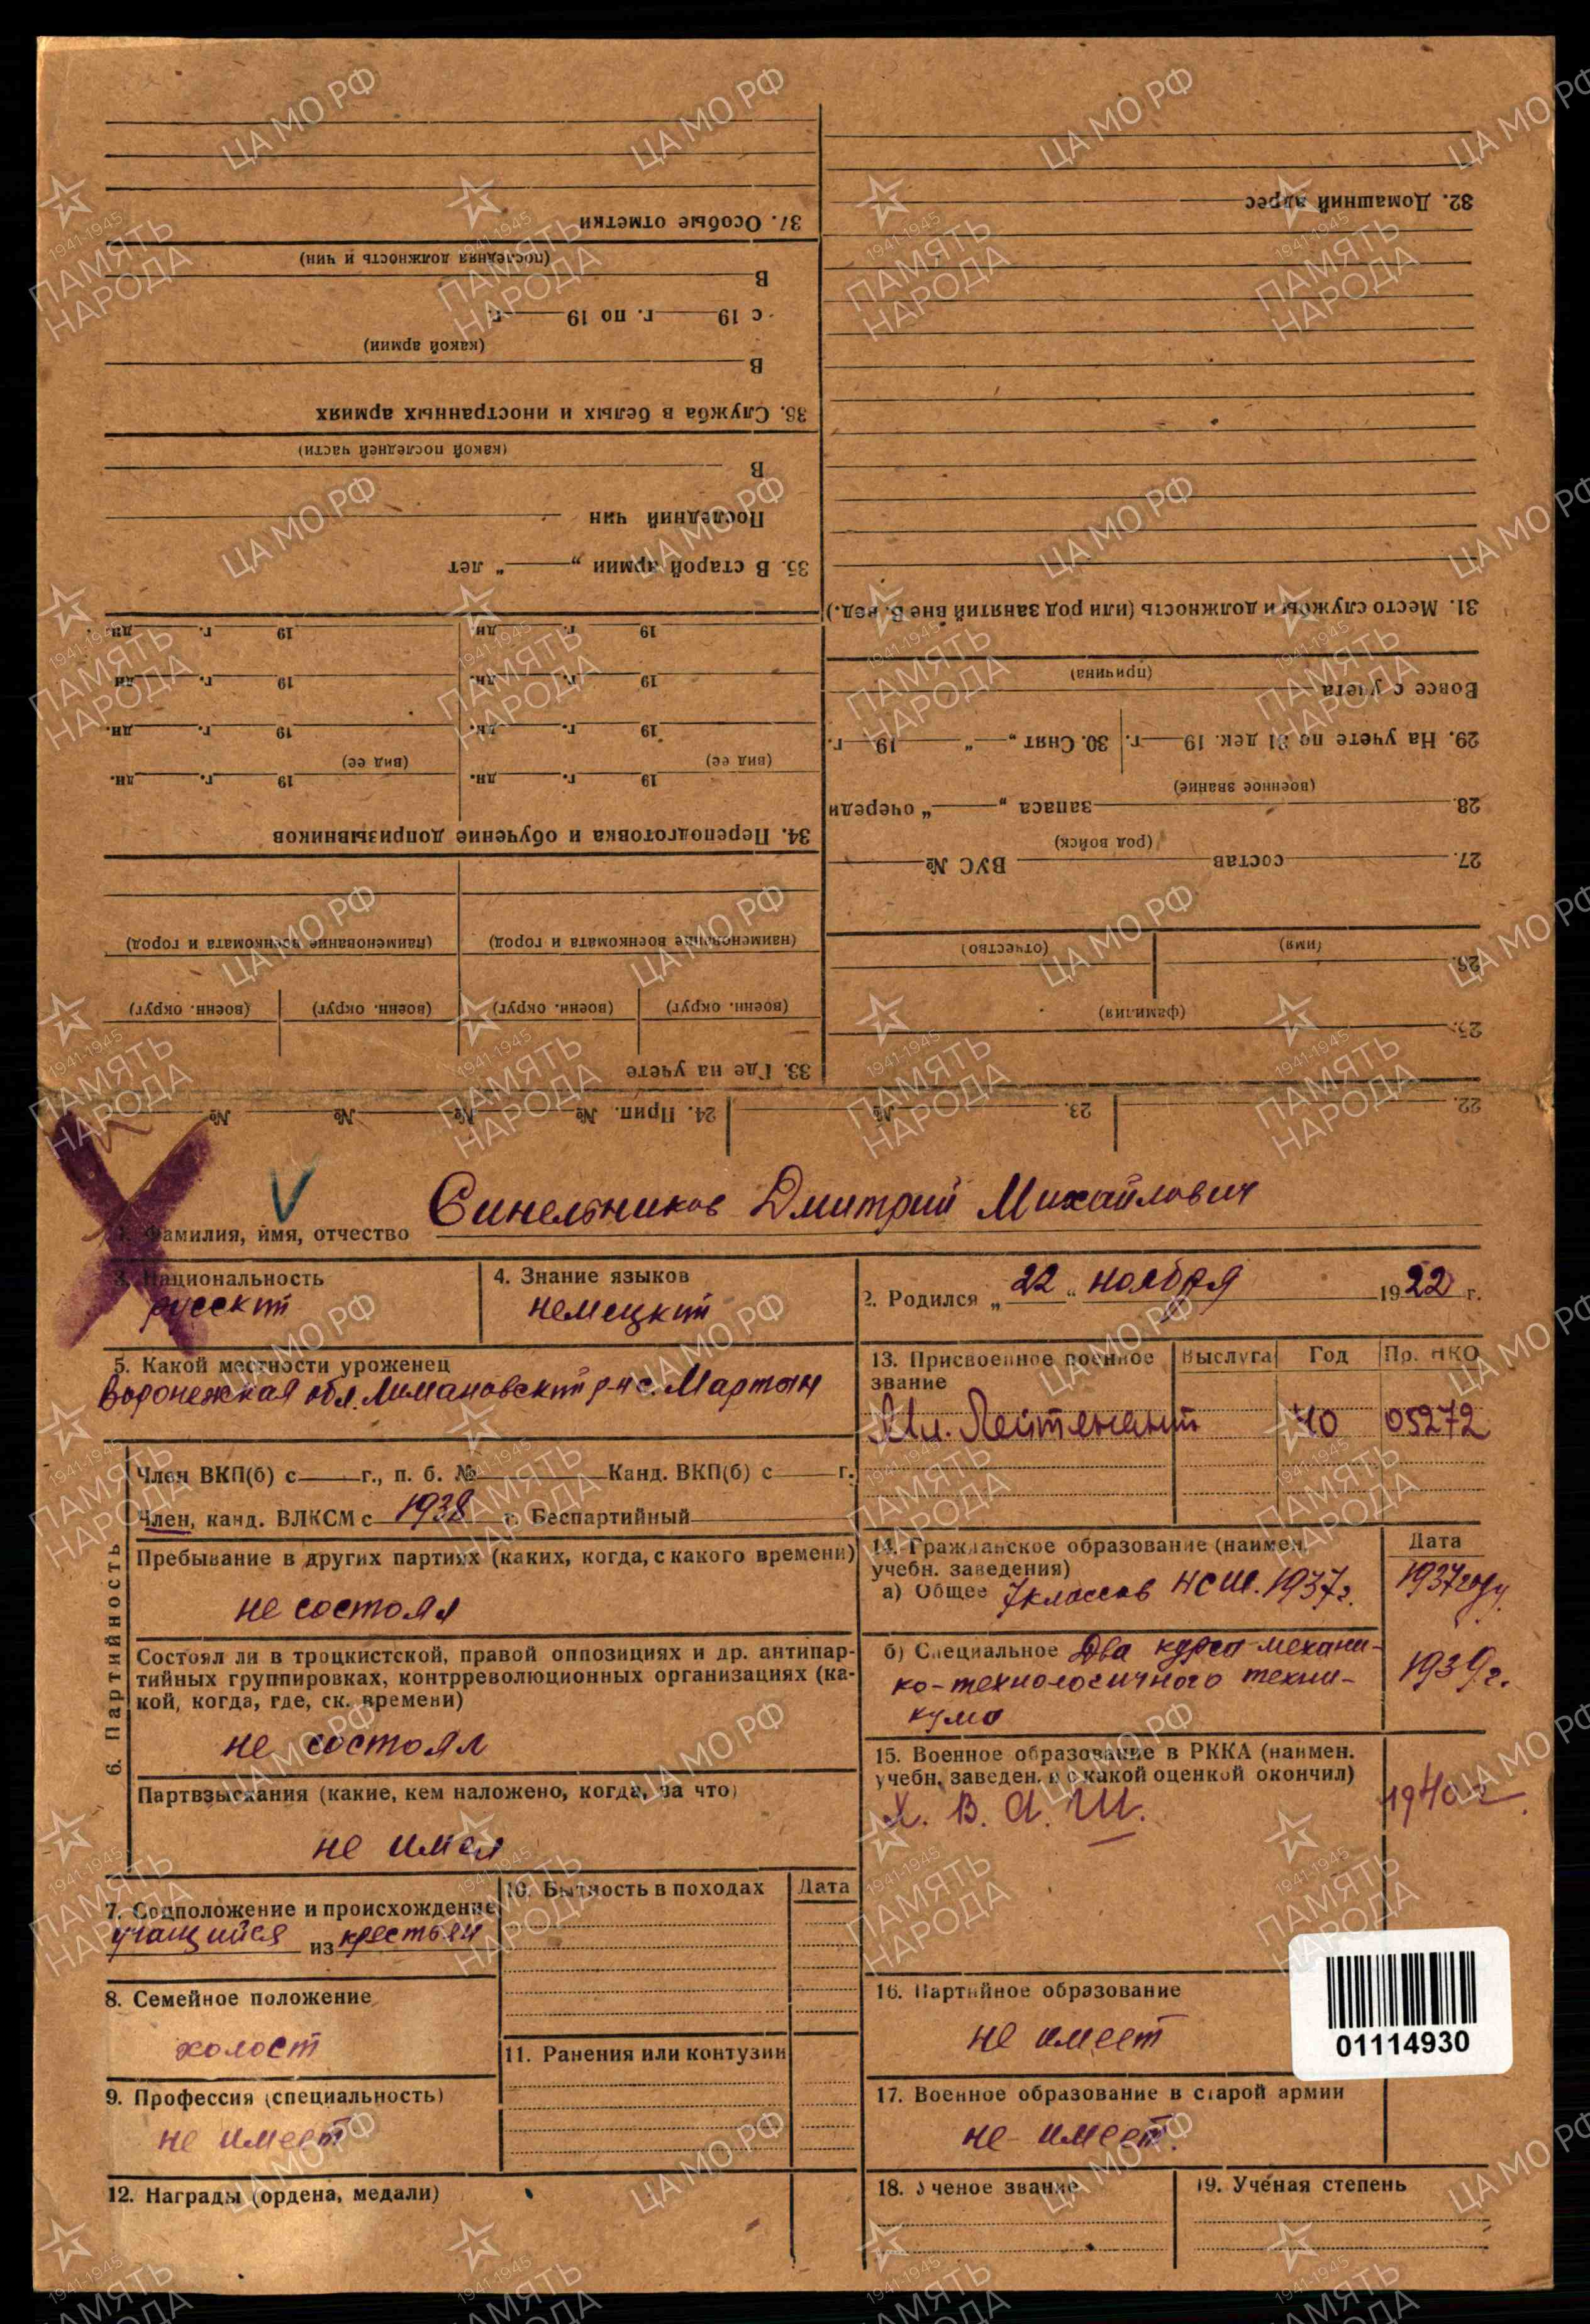 32. Домашний адрес
31. Место службы и должность (или род занятий вне В. вед.)
(причина)
Вовсе с учета
29. На учете по 31 дек. 19 г. 30. Снят „ “ 19 г.
(военное звание)
28. запаса „ “ очереди
(род войск)
27. состав ВУС №
(имя) (отчество)
26.
(фамилия)
25.
22. 23. № 24. Прип. № № № №
37. Особые отметки
(последняя должность и чин)
В
с 19 г. по 19 г.
(какой армии)
В
36. Служба в белых и иностранных армиях
(какой последней части)
В
Последний чин
35. В старой армии „ “ лет
19 г. дн. 19 г. дн.
19 г. дн. 19 г. дн
19 г. дн. 19 г. дн.
(вид ее) (вид ее)
19 г. дн. 19 г. дн.
34. Переподготовка и обучение допризывников
(наименование военкомата и город) (наименование военкомата и город)
(военн. округ) (военн. округ) (военн. округ) (военн. округ)
33. Где на учете
V
1. Фамилия, имя, отчество Синельников Дмитрий Михайлович
3. Национальность
русский
4. Знание языков
немецкий
2. Родился „22“ ноября 1922 г.
5. Какой местности уроженец
Воронежская обл. Лимановский р-н с. Мартын
13. Присвоенное военное звание Выслуга Год Пр. НКО
Мл. Лейтенант 40 05272
6. Партийность
Член ВКП(б) с г., п. б. № Канд. ВКП(б) с г.
Член, канд. ВЛКСМ с 1938 г. Беспартийный
Пребывание в других партиях (каких, когда, с какого времени)
не состоял
Состоял ли в троцкистской, правой оппозициях и др. антипар-
тийных группировках, контрреволюционных организациях (ка-
кой, когда, где, ск. времени)
не состоял
Партвзыскания (какие, кем наложено, когда, за что)
не имел
14. Гражданское образование (наимен. Дата
учебн. заведения)
а) Общее 7 классов НСШ. 1937 г. 1937 году
б) Специальное Два курса механи-
ко-технологичного техни- 1939 г.
кума
15. Военное образование в РККА (наимен.
учебн. заведен. и с какой оценкой окончил)
Х. В. А. Ш. 1940 г
7. Соцположение и происхождение
учащийся из крестьян
8. Семейное положение
холост
9. Профессия (специальность)
не имеет
10. Бытность в походах Дата
11. Ранения или контузии
12. Награды (ордена, медали)
16. Партийное образование
не имеет
01114930
17. Военное образование в старой армии
не имеет.
18. Ученое звание 19. Ученая степень
ЦА МО РФ
1941-1945
ПАМЯТЬ
НАРОДА